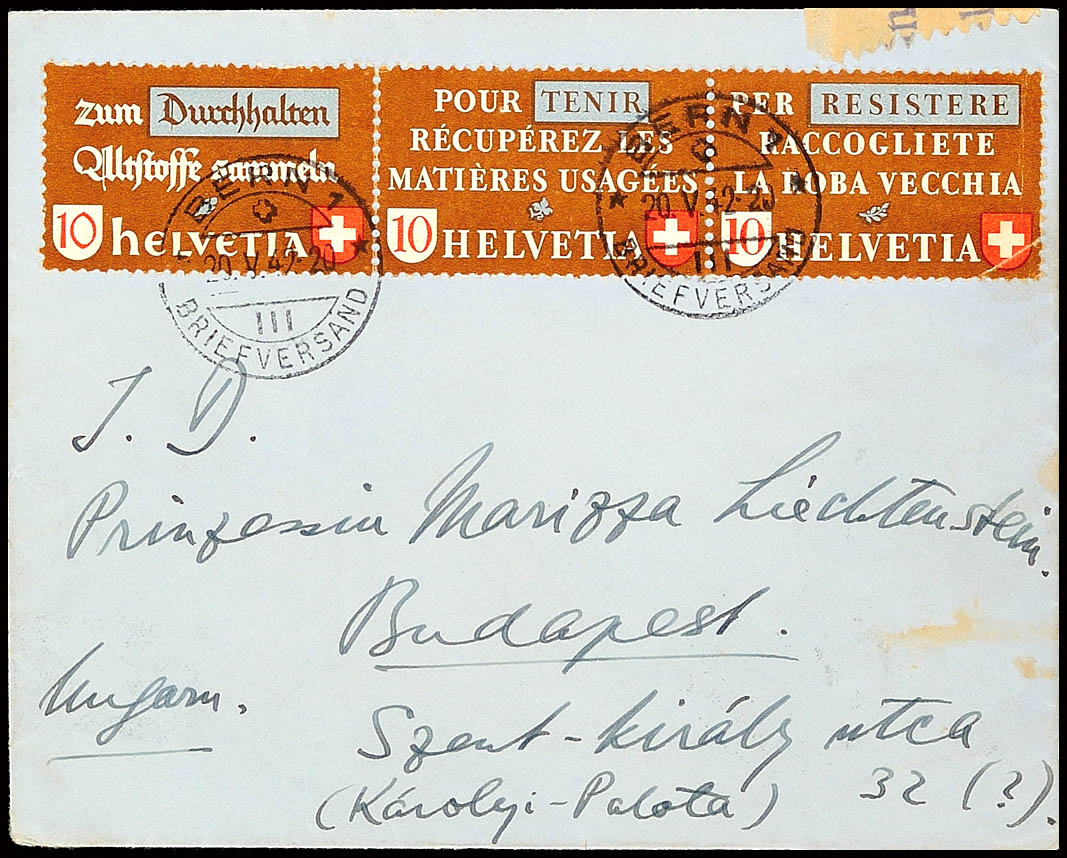 zum Durchhalten
Altstoffe sammeln
10 HELVETIA
POUR TENIR
RÉCUPÉREZ LES
MATIÈRES USAGÉES
10 HELVETIA
PER RESISTERE
RACCOGLIETE
LA ROBA VECCHIA
10 HELVETIA
BERN 1
20.V.42-20
III
BRIEFVERSAND
BERN 1
20.V.42-20
III
BRIEFVERSAND
I. D.
Prinzessin Marizza Liechtenstein.
Budapest.
Ungarn.
Szent-király utca
(Károlyi-Palota) 32 (?).